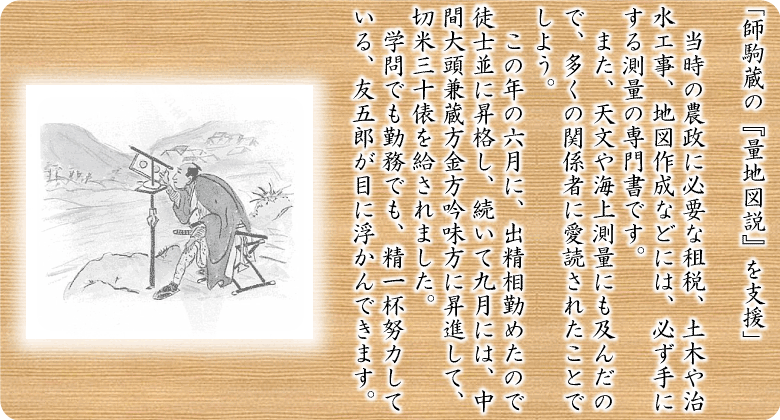 「師駒蔵の『量地図説』を支援」
当時の農政に必要な租税、土木や治
水工事、地図作成などには、必ず手に
する測量の専門書です。
また、天文や海上測量にも及んだの
で、多くの関係者に愛読されたことで
しよう。
この年の六月に、出精相勤めたので
徒士並に昇格し、続いて九月には、中
間大頭兼蔵方金方吟味方に昇進して、
切米三十俵を給されました。
学問でも勤務でも、精一杯努力して
いる、友五郎が目に浮かんできます。